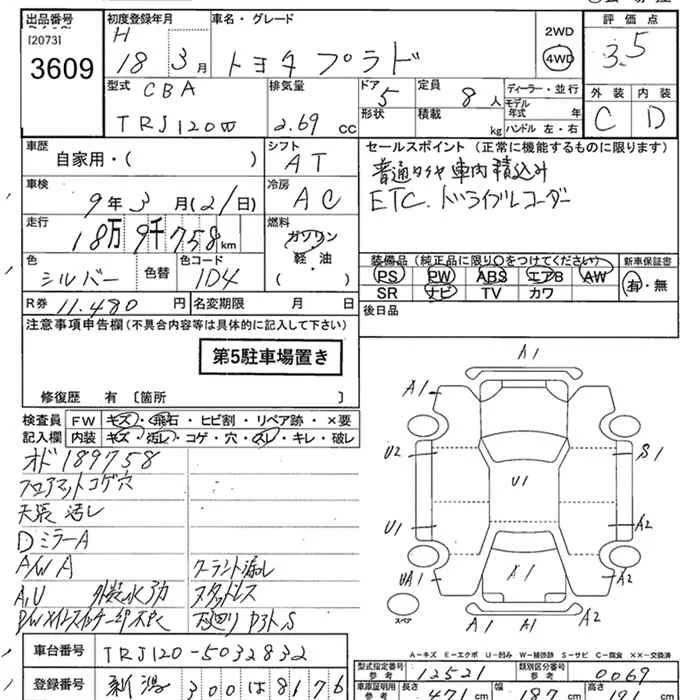 出品番号 初度登録年月 車名・グレード 評価点
[2073]
3609
H 18 3月 トヨタ プラド 2WD 4WD 3.5
外装 内装
C D
型式 CBA 排気量 ドア 5 定員 8人 ディーラー・並行
TRJ120W 2.69 CC 形状 積載 kg モデル年式 年
ハンドル 左・右
車歴 シフト セールスポイント (正常に機能するものに限ります)
自家用・( ) AT 普通タイヤ車内積込み
車検 冷房 ETC. ドライブレコーダー
9年3月(21日) AC
走行 燃料
18万9千758km ガソリン
軽・油
( )
装備品 (純正品に限り○をつけてください) 新車保証書
色 色替 色コード PS PW ABS エアB AW 有・無
シルバー 1D4 SR ナビ TV カワ
R券 11.480円 名変期限 月 日 後日品
注意事項申告欄 (不具合内容等は具体的に記入して下さい)
第5駐車場置き
修復歴 有 〔箇所 〕
検査員 FW キズ・飛石・ヒビ割・リペア跡・×要
記入欄 内装 キズ・汚レ・コゲ・穴・スレ・キレ・破レ
オド189758
フロアマットコゲ穴
天張汚レ
DミラーA
A/WA クーラント漏レ
A,U スタットレス
下回り
A1
A1
U2 S1
U1
U1 A2
A1
UA1 A2
スペア
A1 A1 A2
A-キズ E-エクボ U-凹み W-補修跡 S-サビ C-腐食 XX-交換済
車台番号 TRJ120-5032832
登録番号 新潟 300 は 8176
型式指定番号 参考 12521 類別区分番号 参考 0069
車庫証明用 参考 長さ 471cm 幅 187cm 高さ 191cm